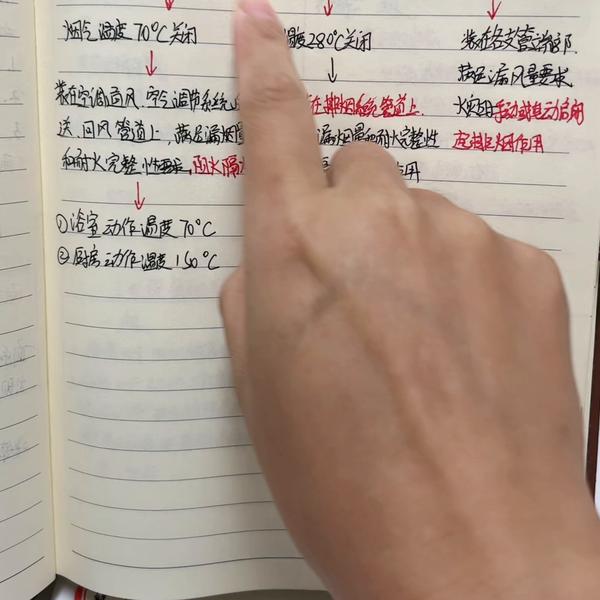 烟气温度70℃关闭
温度280℃关闭
装在各支管端部
装在空调通风、空气调节系统
送、回风管道上,满足漏烟量
和耐火完整性要求,
在排烟系统管道上
漏烟量和耐火完整性
作用
满足漏风量要求
火灾时手动或电动启闭
起排烟作用
①浴室动作温度70℃
②厨房动作温度150℃